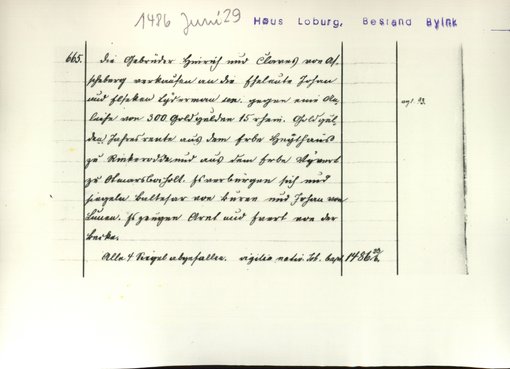 1486 Juni 29 Haus Loburg, Bestand Bylnk
665. Die Gebrüder Heinrich und Clawes von As-
scheberg verkaufen an die Eheleute Johan
und Elseken Lyderman gegen eine An-
leihe von 300 Goldgulden 15 rhein. Goldgul-
den Jahresrente aus dem Erbe Heyßhaus
zu Rinkerode und aus dem Erbe
zu Otmarsbocholt. Es verbürgen sich und
siegeln Baltesar von Büren und Johan von
Lünen. Es zeugen Arnt und Evert von der
Becke.
Alle 4 Siegel abgefallen. vigilia nativ. Joh. bapt. 1486
vgl. 93.